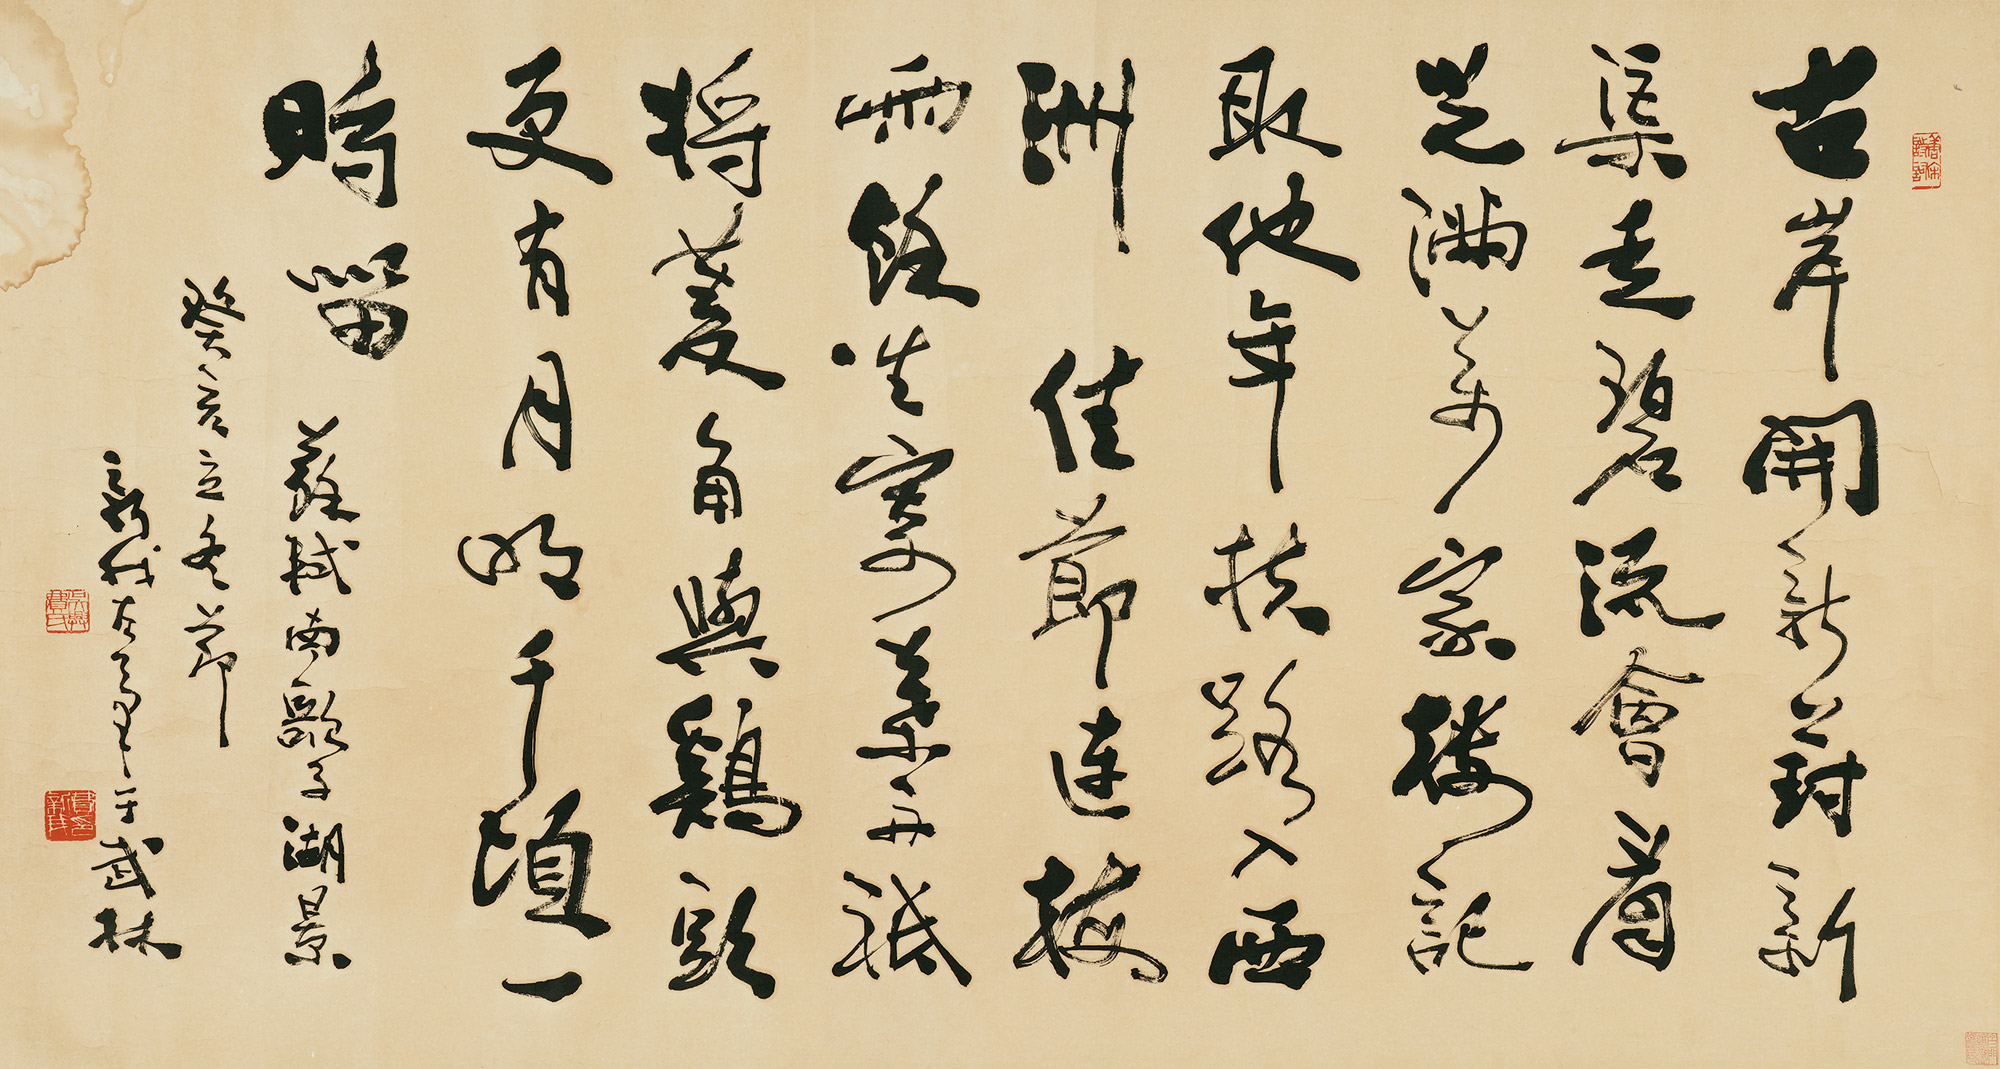 古岸開新葑新
渠走碧流會看
光滿萬家樓記
取他年扶路入西
洲 佳節連梅
雨餘生寄葉舟祗
將菱角與雞頭
更有月明千頃一
時留 蘇軾南歌子湖景
癸亥立冬節
新我左于武林
吳興費氏